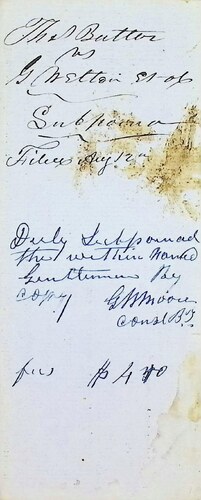 Thos Button
vs
G Welton et als
Subpoena
Filed Aug 12th
Duly Subpoenaed
the within Named
Gentlemen By
copy
G W Moore
Const B.T.
fees $4.00